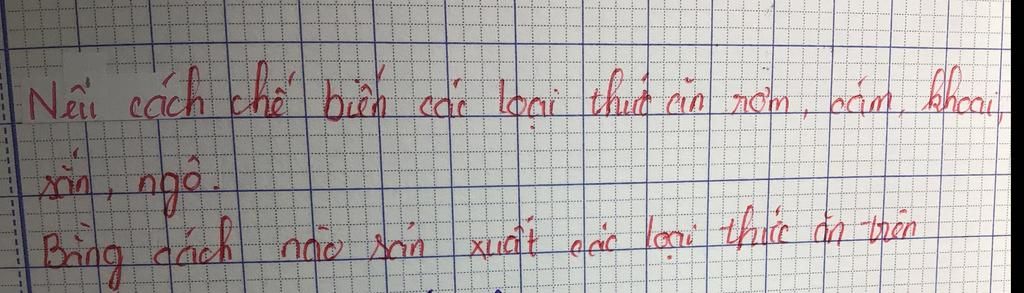 Nêu cách chế biến các loại thức ăn rơm, cám, khoai,
sắn, ngô.
Bằng cách nào sản xuất các loại thức ăn trên